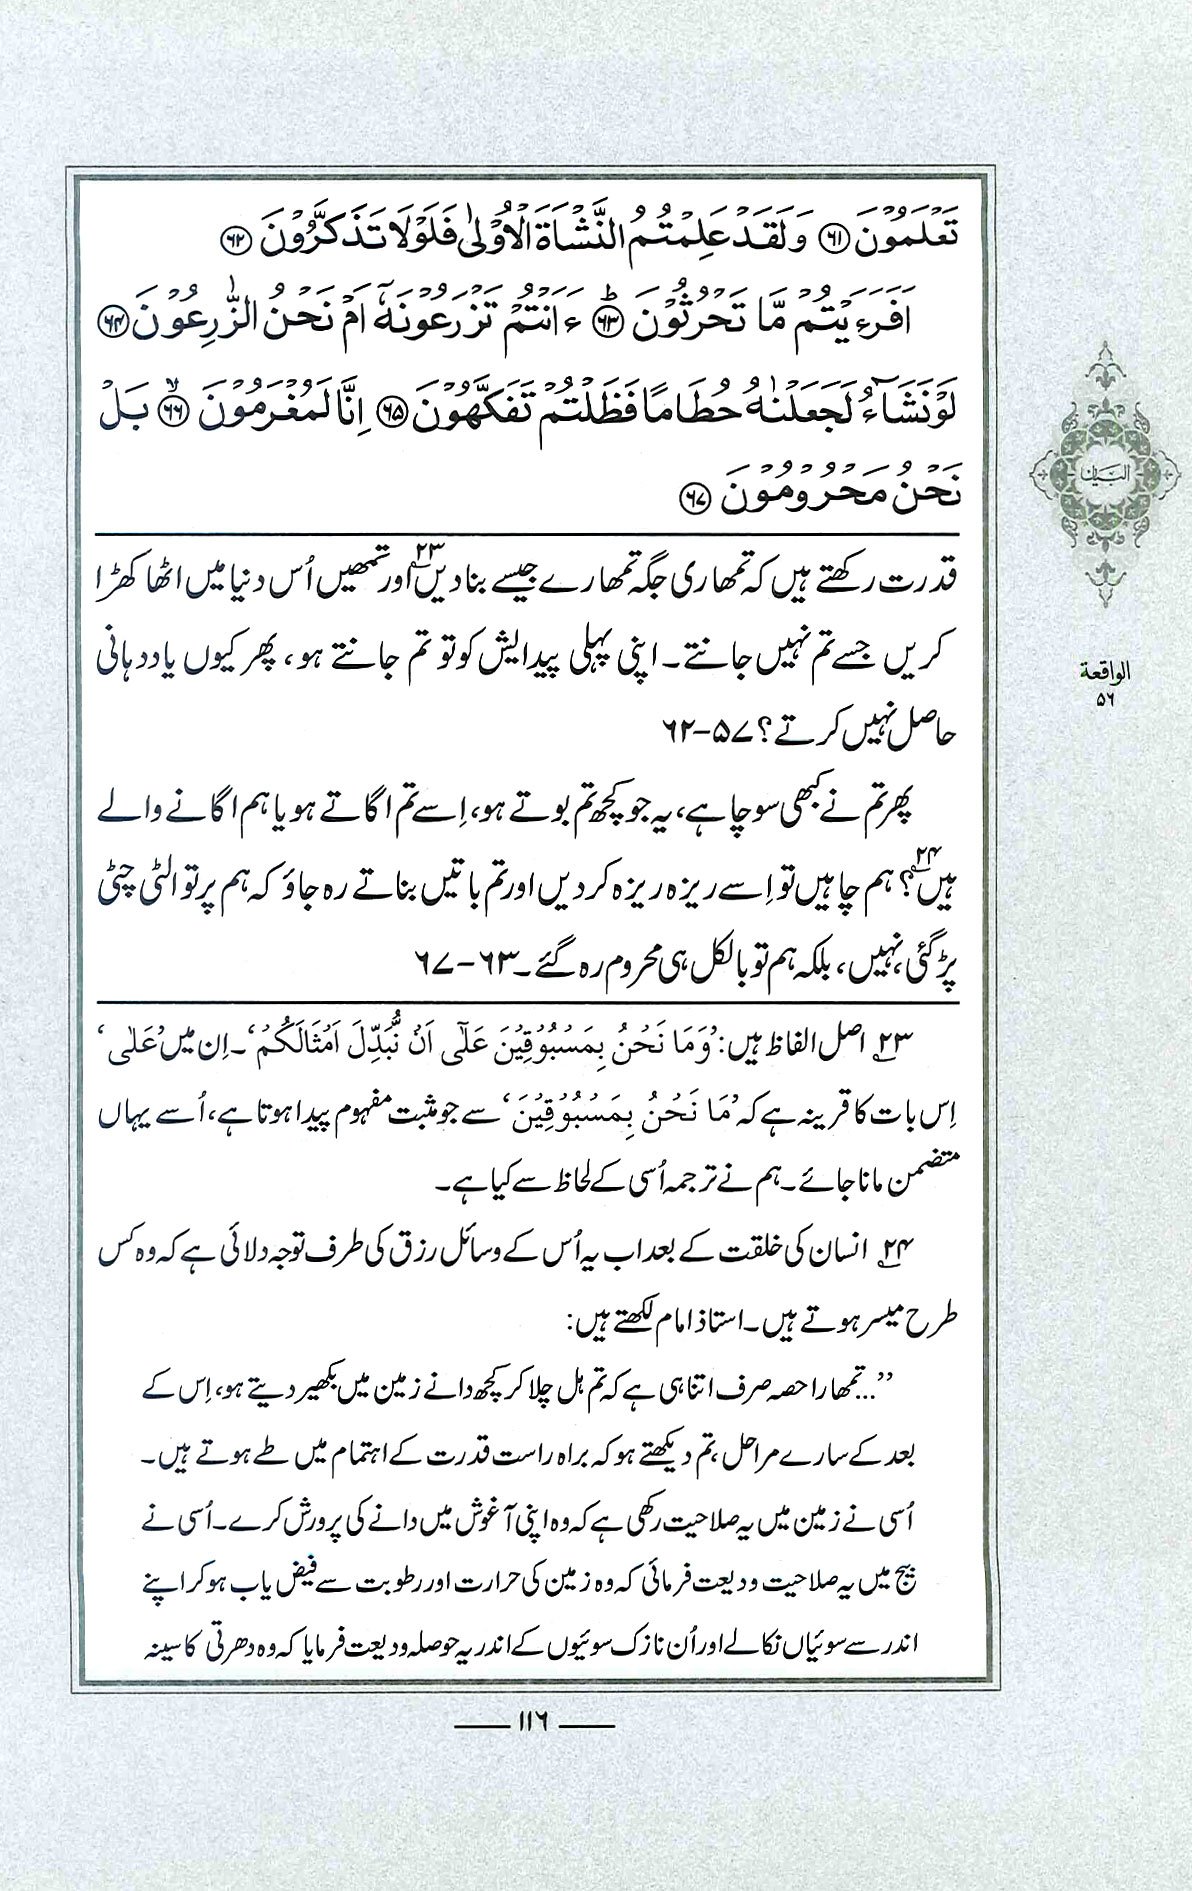 تَعْلَمُوْنَ ﴿۶۱﴾ وَلَقَدْ عَلِمْتُمُ النَّشْاَةَ الْاُوْلٰى فَلَوْلَا تَذَكَّرُوْنَ ﴿۶۲﴾
اَفَرَءَيْتُمْ مَّا تَحْرُثُوْنَ ﴿۶۳﴾ؕ ءَاَنْتُمْ تَزْرَعُوْنَهٗٓ اَمْ نَحْنُ الزّٰرِعُوْنَ ﴿۶۴﴾
لَوْ نَشَآءُ لَجَعَلْنٰهُ حُطَامًا فَظَلْتُمْ تَفَكَّهُوْنَ ﴿۶۵﴾ اِنَّا لَمُغْرَمُوْنَ ﴿۶۶﴾ۙ بَلْ
نَحْنُ مَحْرُوْمُوْنَ ﴿۶۷﴾
قدرت رکھتے ہیں کہ تمھاری جگہ تمھارے جیسے بنا دیں۲۳ اور تمھیں اُس دنیا میں اٹھا کھڑا
کریں جسے تم نہیں جانتے۔ اپنی پہلی پیدایش کو تو تم جانتے ہو، پھر کیوں یاددہانی
حاصل نہیں کرتے؟ ۵۷-۶۲
پھر تم نے کبھی سوچا ہے، یہ جو کچھ تم بوتے ہو، اِسے تم اگاتے ہو یا ہم اگانے والے
ہیں۲۴؟ ہم چاہیں تو اِسے ریزہ ریزہ کر دیں اور تم باتیں بناتے رہ جاؤ کہ ہم پر تو الٹی چٹی
پڑ گئی، نہیں، بلکہ ہم تو بالکل ہی محروم رہ گئے۔ ۶۳-۶۷
۲۳ اصل الفاظ ہیں: ’وَمَا نَحْنُ بِمَسْبُوْقِيْنَ عَلٰٓى اَنْ نُّبَدِّلَ اَمْثَالَكُمْ‘۔ اِن میں ’عَلٰى‘
اِس بات کا قرینہ ہے کہ ’مَا نَحْنُ بِمَسْبُوْقِيْنَ‘ سے جو مثبت مفہوم پیدا ہوتا ہے، اُسے یہاں
متضمن مانا جائے۔ ہم نے ترجمہ اُسی کے لحاظ سے کیا ہے۔
۲۴ انسان کی خلقت کے بعد اب یہ اُس کے وسائل رزق کی طرف توجہ دلائی ہے کہ وہ کس
طرح میسر ہوتے ہیں۔ استاذ امام لکھتے ہیں:
”...تمھارا حصہ صرف اتنا ہی ہے کہ تم ہل چلا کر کچھ دانے زمین میں بکھیر دیتے ہو، اِس کے
بعد کے سارے مراحل، تم دیکھتے ہو کہ براہ راست قدرت کے اہتمام میں طے ہوتے ہیں۔
اُسی نے زمین میں یہ صلاحیت رکھی ہے کہ وہ اپنی آغوش میں دانے کی پرورش کرے۔ اُسی نے
بیج میں یہ صلاحیت ودیعت فرمائی کہ وہ زمین کی حرارت اور رطوبت سے فیض یاب ہو کر اپنے
اندر سے سوئیاں نکالے اور اُن نازک سوئیوں کے اندر یہ حوصلہ ودیعت فرمایا کہ وہ دھرتی کا سینہ
۱۱۶
البیان
الواقعة
۵۶